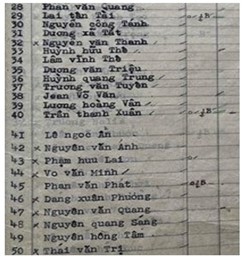 28 Phan văn Quang
29 Lai tần Tài
30 Nguyễn công Tánh
31 Dương xã Tất
32 x Nguyễn văn Thanh
33 Huỳnh hữu Thế
34 Lâm vĩnh Thế
35 Dương văn Triệu
36 Huỳnh quang Trung
37 Trương văn Tuyên
38 Jean Võ Văn
39 Lương hoàng Vân
40 Trần thanh Xuân
41 Lê ngọc Ẩn
42 x Nguyễn văn Ánh
43 x Phạm hữu Lai
44 x Vo văn Minh
45 Phan văn Phát
46 x Dang xuân Phương
47 x Nguyễn văn Quang
48 x Nguyễn quang Sang
49 Nguyễn hồng Tâm
50 x Thái văn Trị